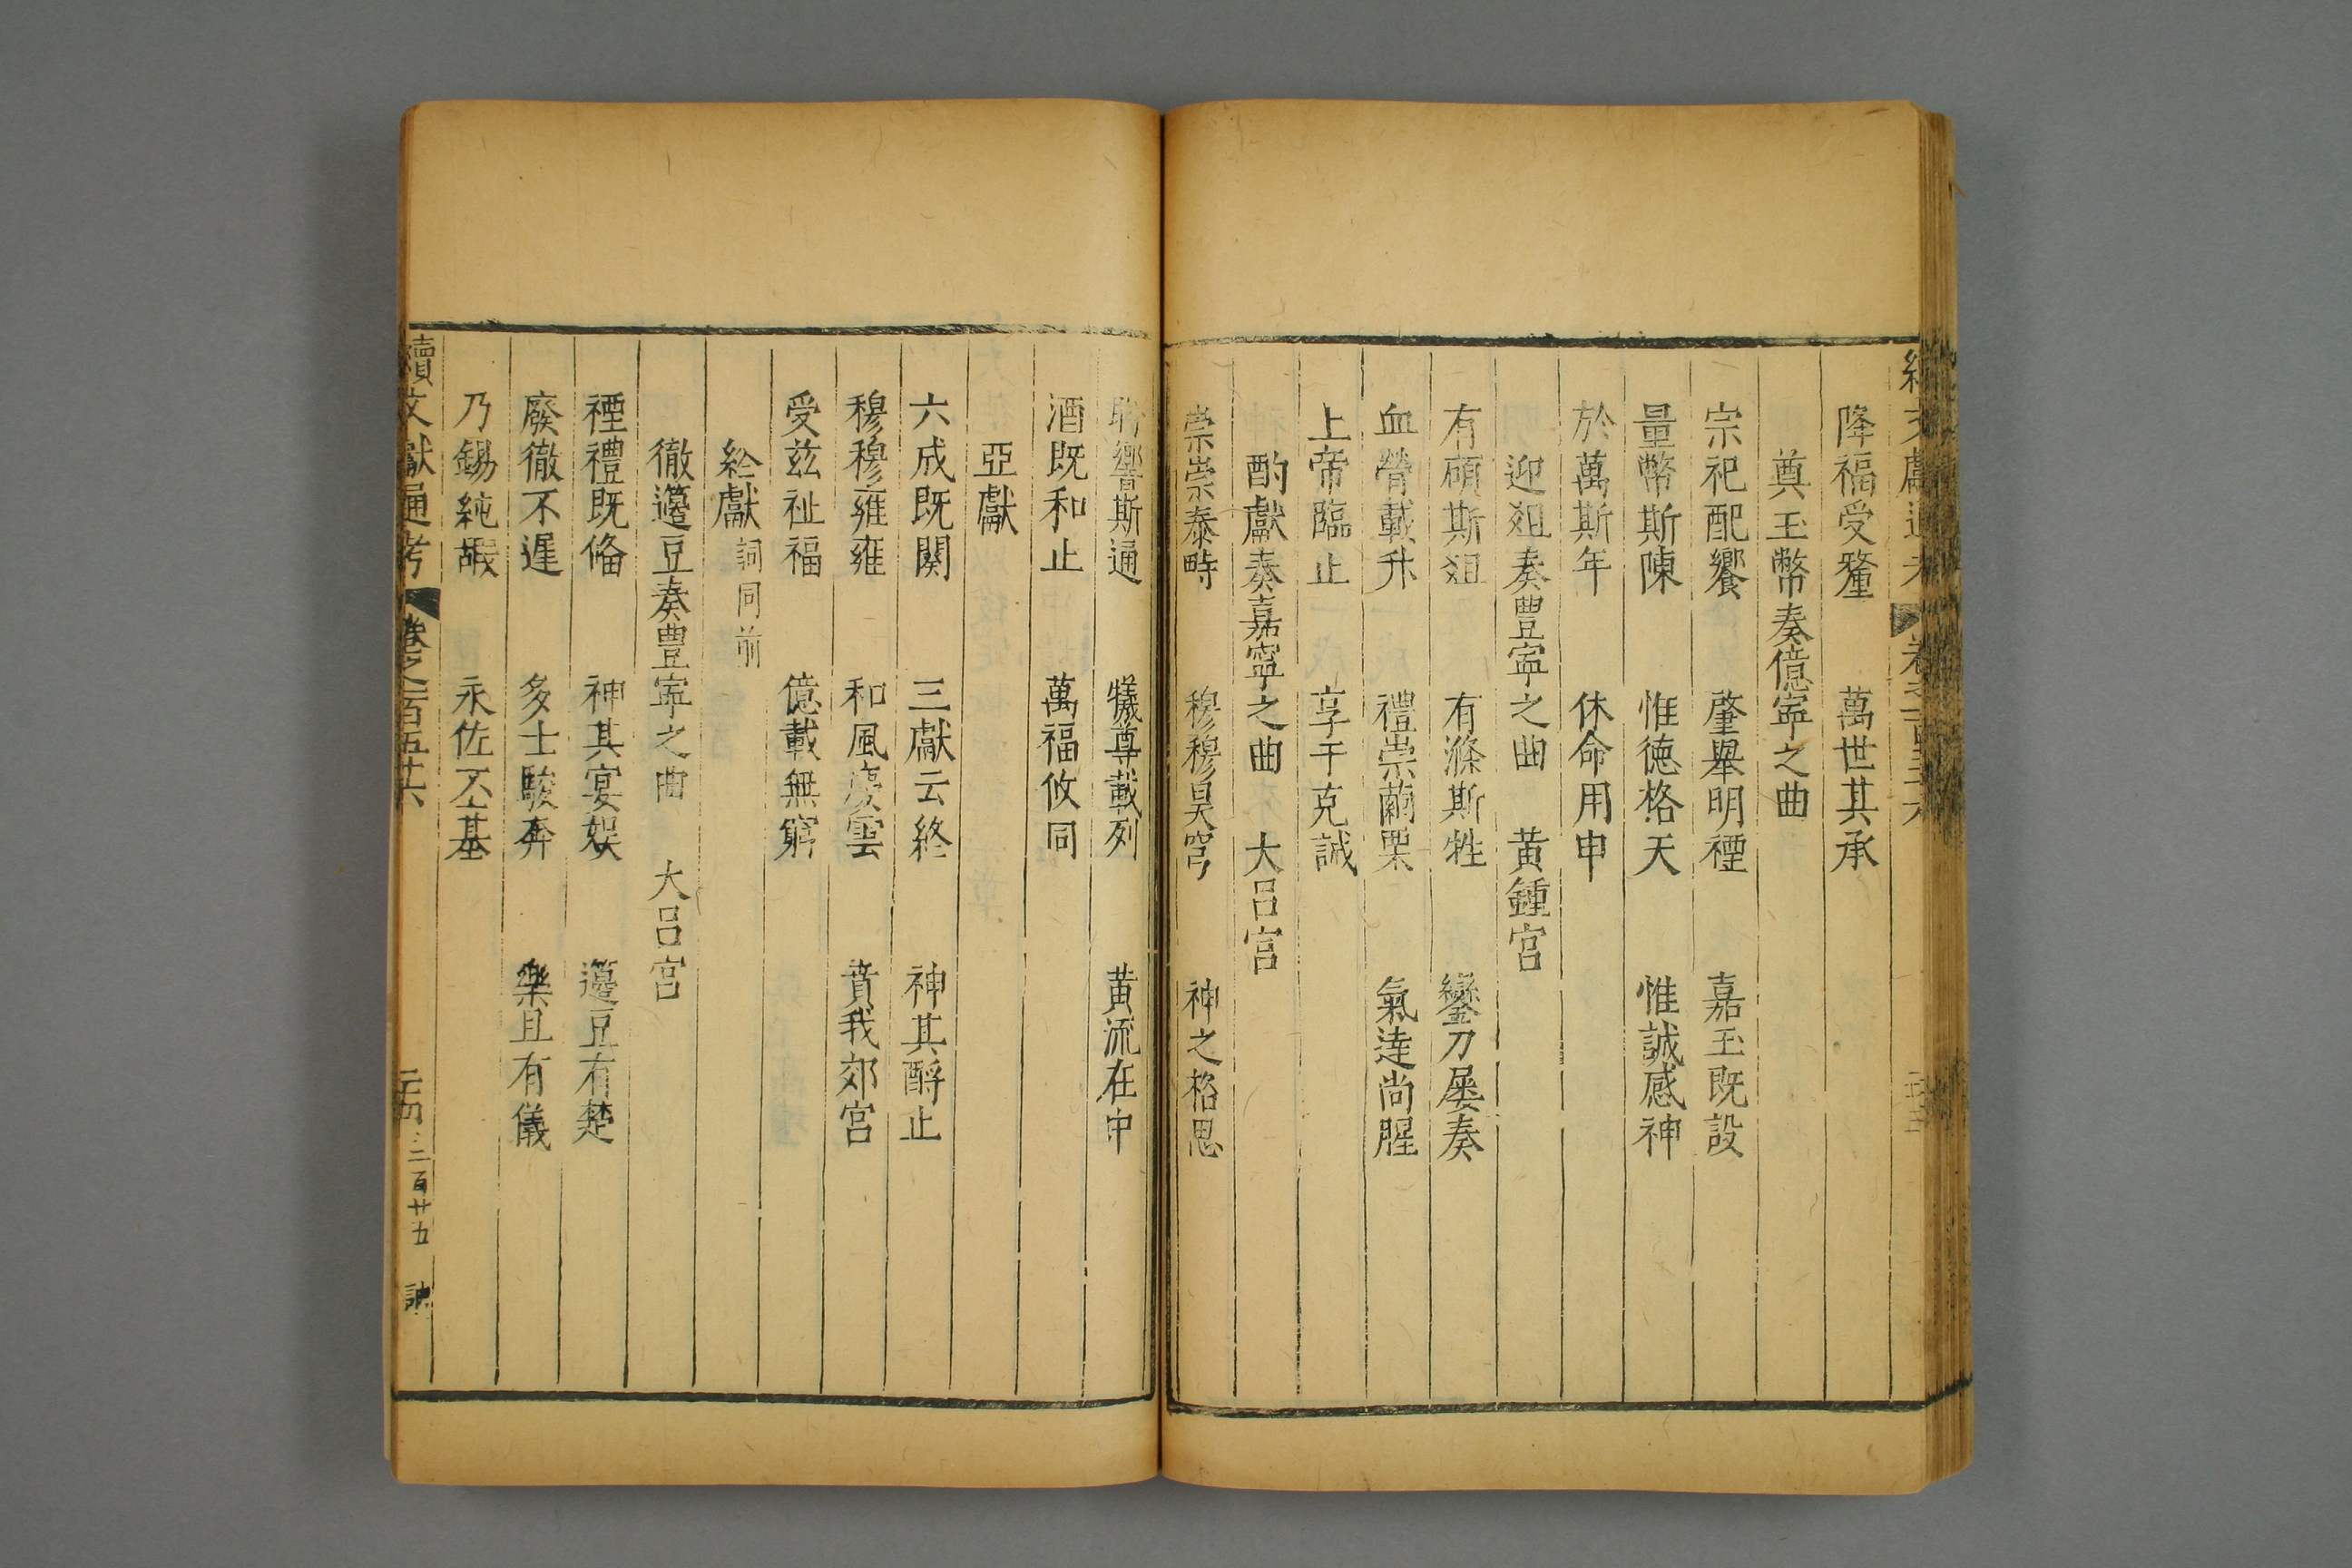 降福受釐　萬世其承
奠玉幣奏億寧之曲
宗祀配饗　肇舉明禋　嘉玉既設
量幣斯陳　惟德格天　惟誠感神
於萬斯年　休命用申
迎俎奏豊寧之曲　黃鍾宮
有碩斯俎　有滌斯牲　鑾刀屡奏
血膋載升　禮崇繭栗　氣達尚腥
上帝臨止　享于克誠
酌獻奏嘉寧之曲　大呂宮
崇崇泰畤　穆穆昊穹　神之格思
肸響斯通　犧尊載列　黃流在中
酒既和止　萬福攸同
亞獻
六成既闋　三獻云終　神其醉止
穆穆雍雍　和風慶雲　賁我郊宮
受兹祉福　億載無窮
終獻詞同前
徹籩豆奏豊寧之曲　大呂宮
禋禮既俻　神其宴娱　籩豆有楚
廢徹不遲　多士駿奔　樂且有儀
乃錫純嘏　永佐丕基
續文獻通考　卷之一百五十六　二十四　三百廿五